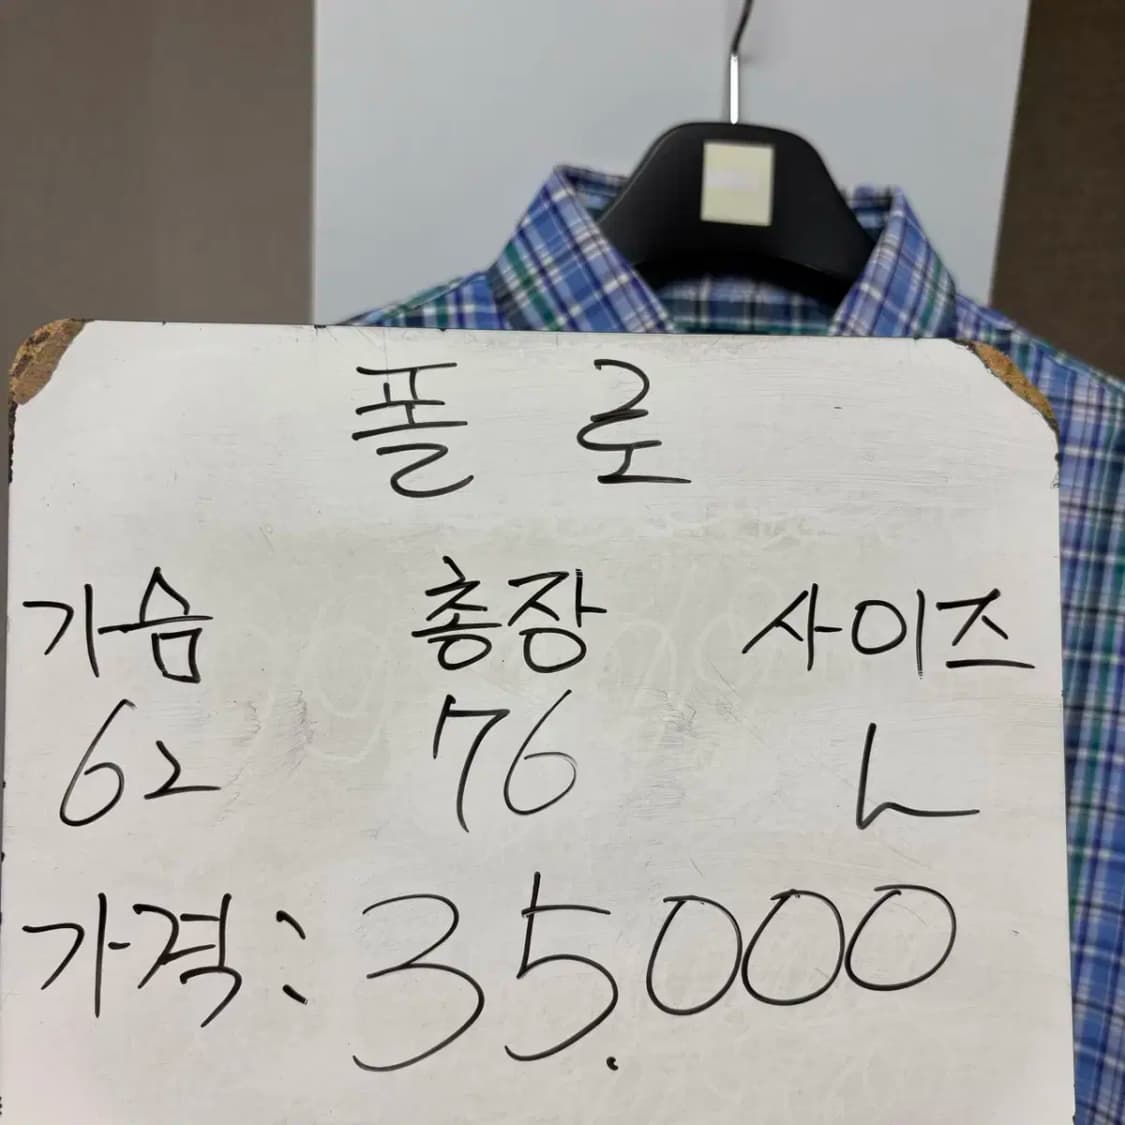 폴로
가슴 총장 사이즈
62 76 L
가격: 35.000